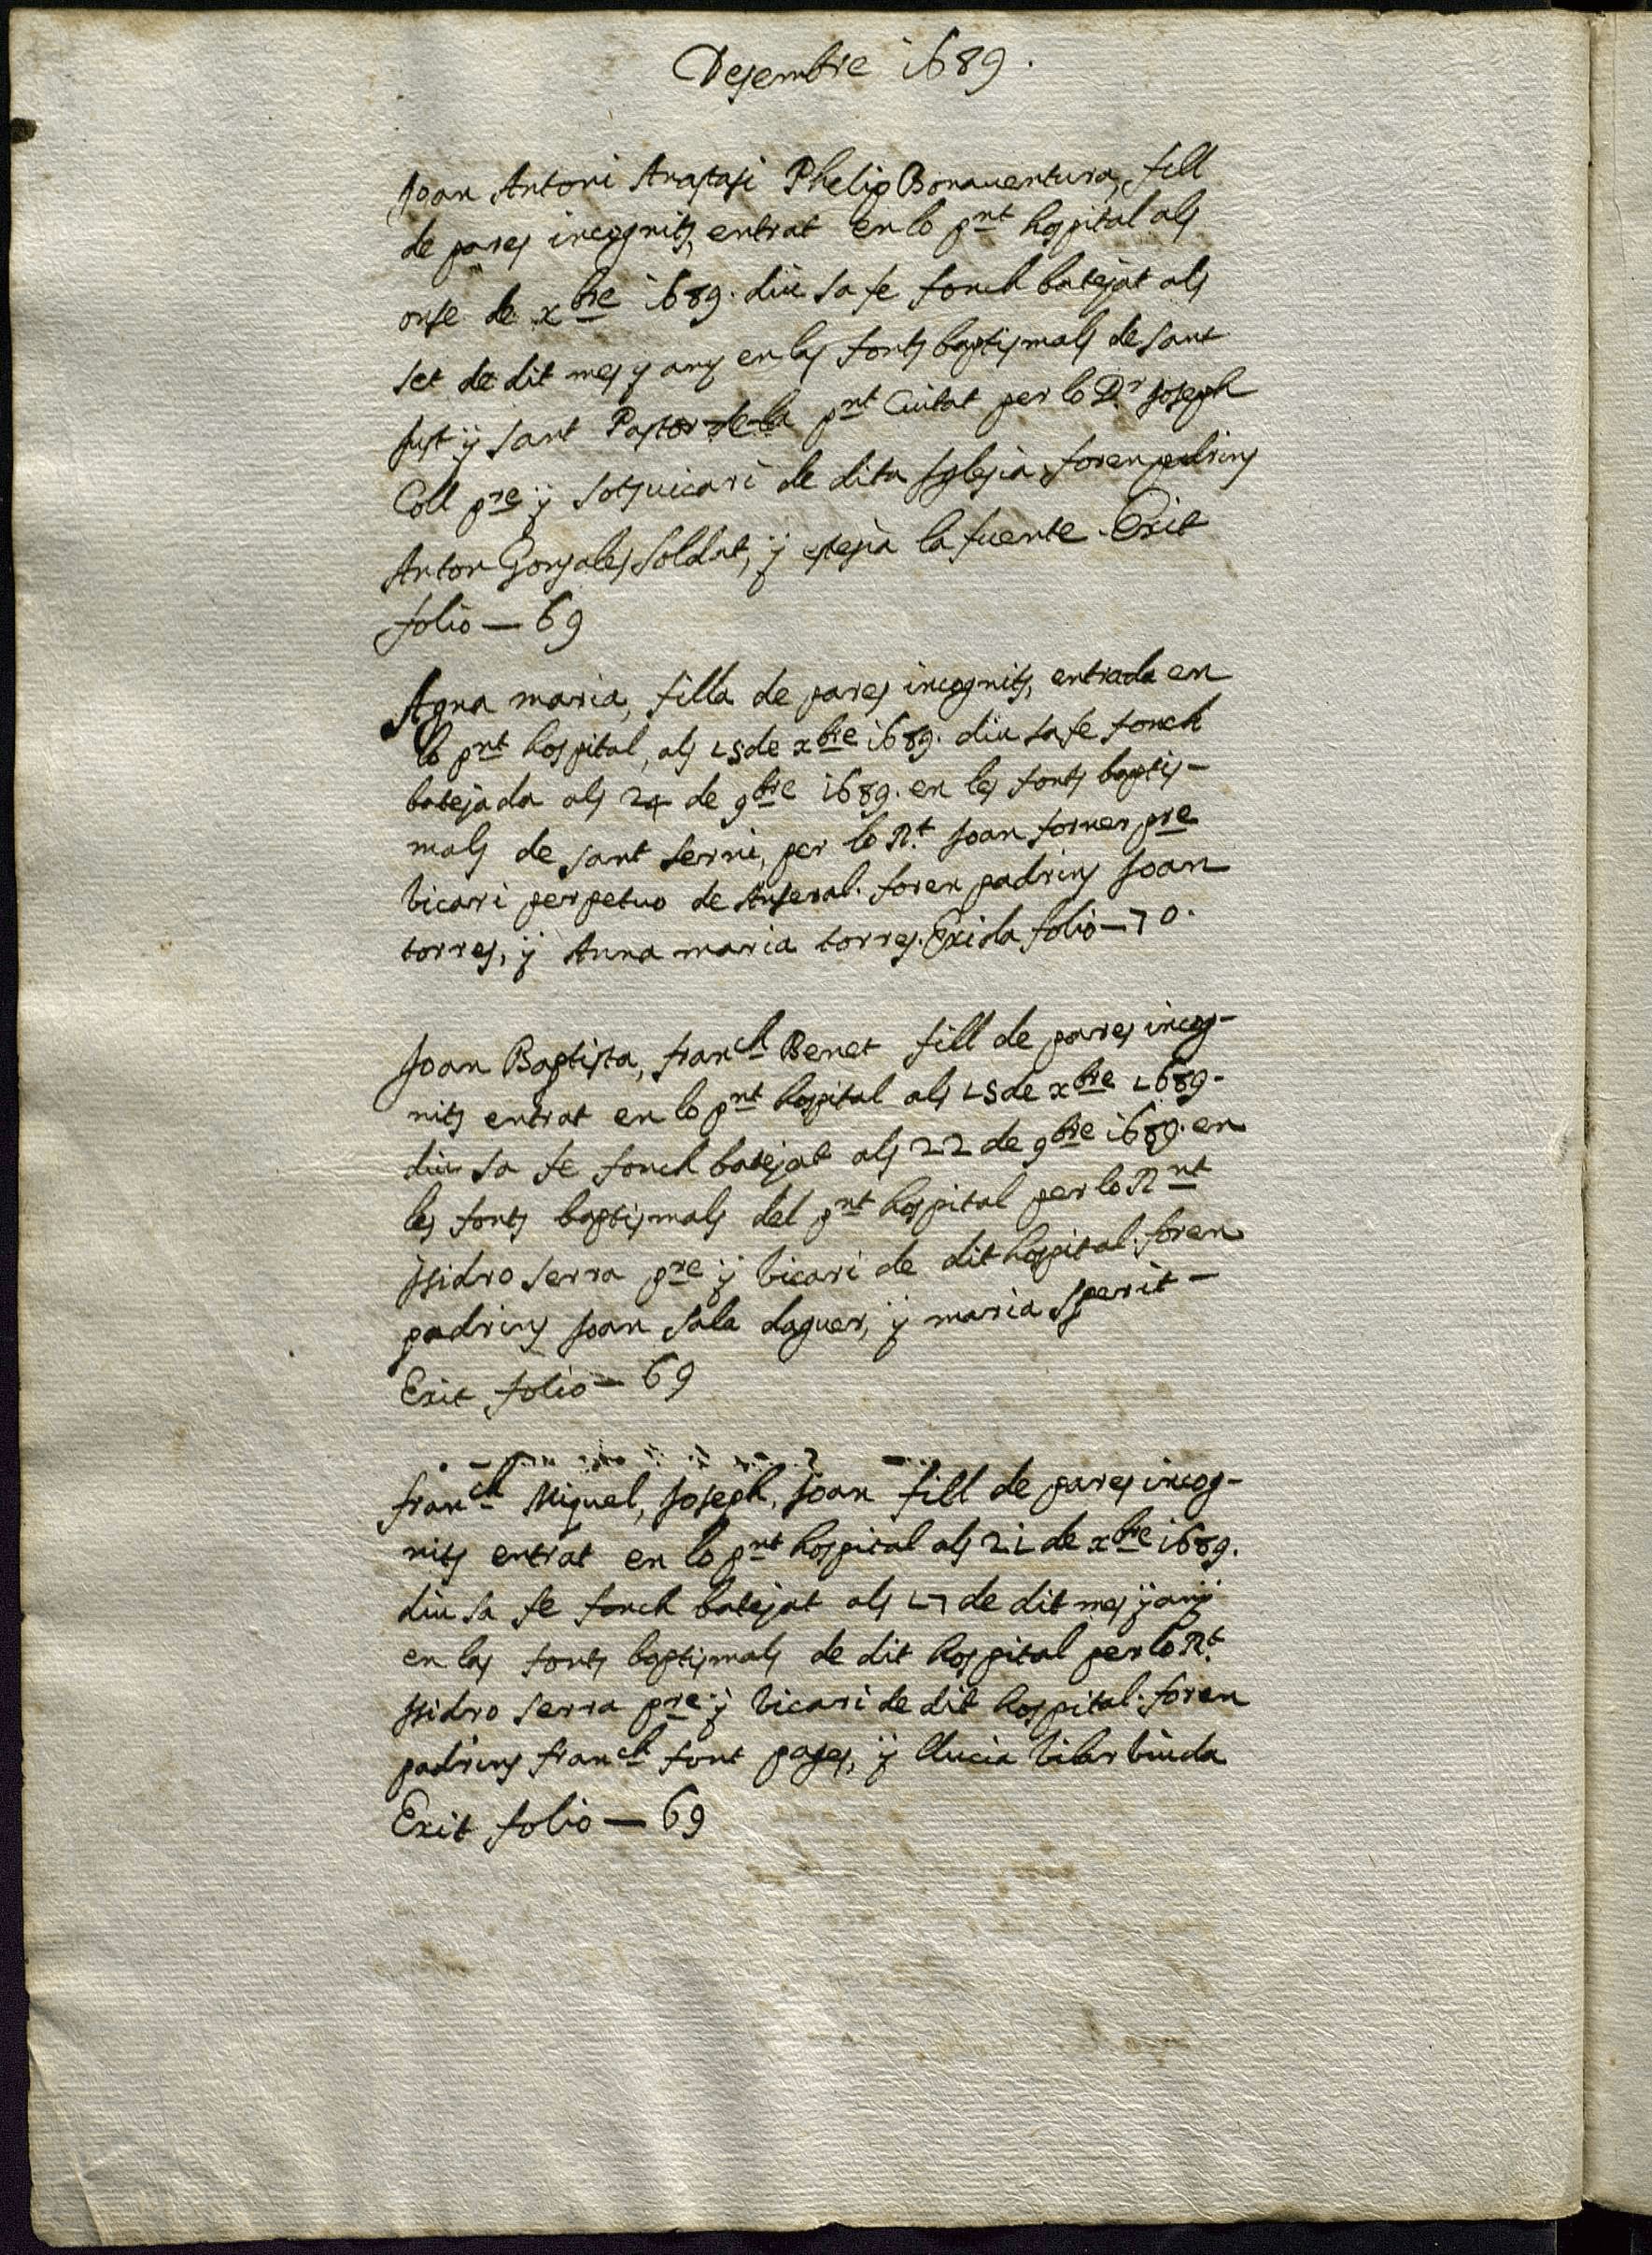 Desembre 1689.
Joan Antoni Anastasi Phelip Bonauentura, fill
de pares incognits, entrat en lo pnt hospital als
onse de xbre 1689. diu sa fe fonch batejat als
set de dit mes y any en las fonts baptismals de sant
Just ÿ sant Pastor de la pnt Ciutat per lo Dr Joseph
Coll pre ÿ sotsuicari de dita Iglesia foren padrins
Anton Gonsales soldat, ÿ la fuente. Exit
folio — 69
Agna maria, filla de pares incognits, entrada en
lo pnt hospital, als 15 de xbre 1689. diu sa fe fonch
batejada als 24 de 9bre 1689. en les fonts baptis-
mals de sant Serni, per lo Rt Joan forner pre
vicari perpetuo de Anseral. foren padrins Joan
torres, ÿ Anna maria torres. Exida folio — 70.
Joan Baptista, franch Benet fill de pares incog-
nits entrat en lo pnt hospital als 15 de xbre 1689-
diu sa fe fonch batejat als 22 de 9bre 1689. en
les fonts baptismals del pnt hospital per lo Rnt
Isidro Serra pre ÿ vicari de dit hospital. foren
padrins Joan Sala daguer, ÿ maria Sperit-
Exit folio — 69
franch Miquel, Joseph, Joan fill de pares incog-
nits entrat en lo pnt hospital als 21 de xbre 1689.
diu sa fe fonch batejat als 17 de dit mes ÿ anÿ
en las fonts baptismals de dit hospital per lo Rt
Isidro Serra pre ÿ vicari de dit hospital. foren
padrins franch font pages, ÿ llucia vilar viuda
Exit folio — 69